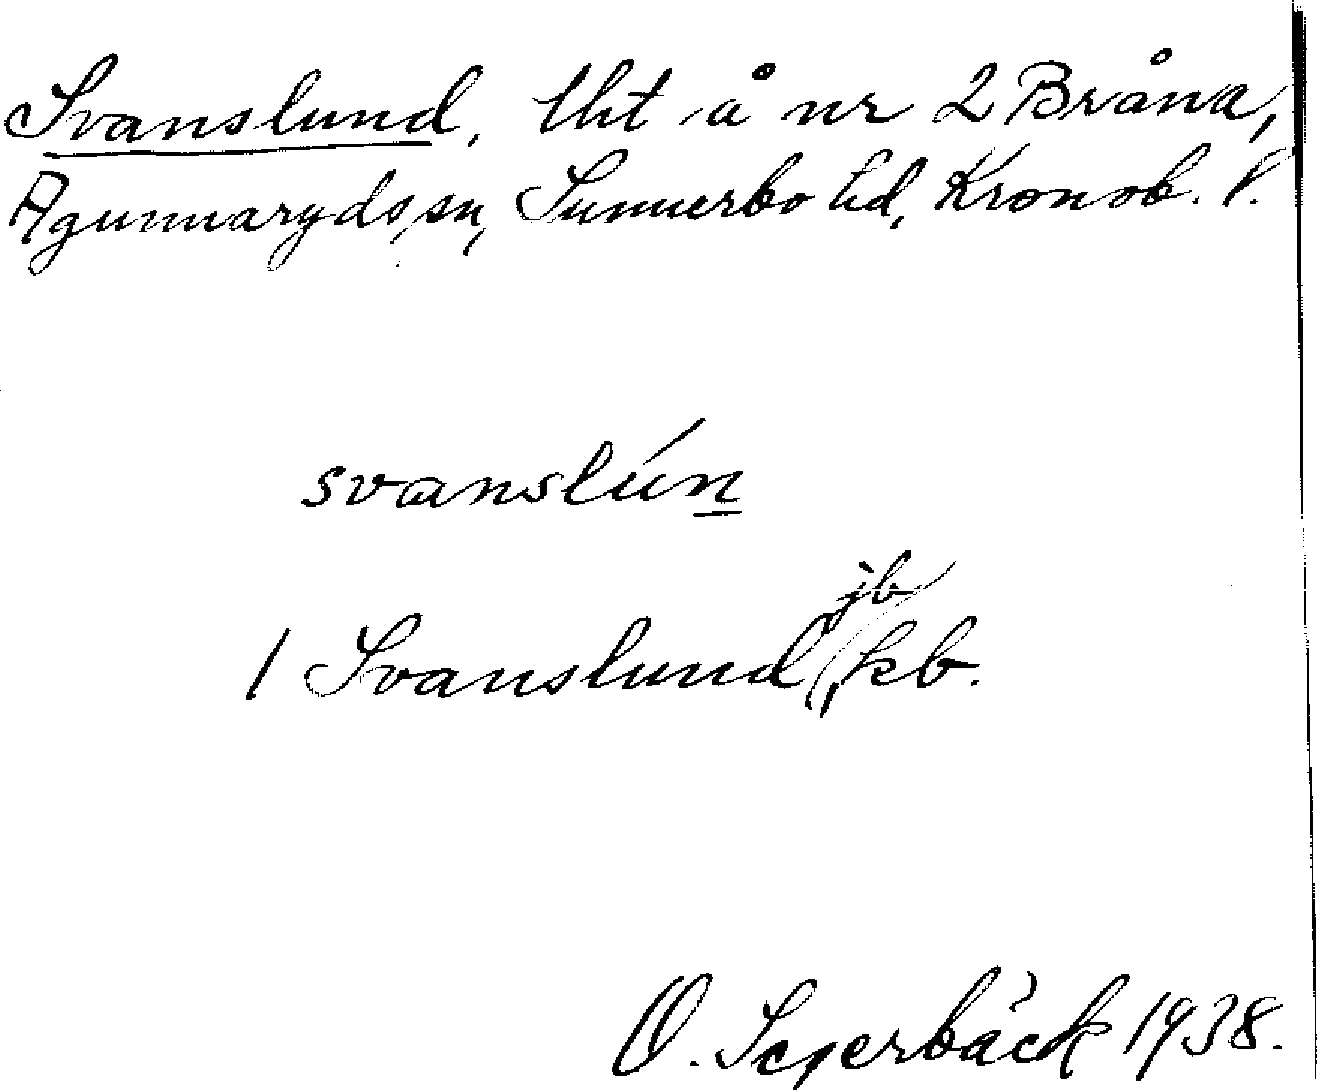 Svanslund, lht å nr 2 Bråna,
Agunnaryds sn, Sunnerbo hd, Kronob. l.
svanslún
jb
1 Svanslund, kb.
O. Segerbäck 1938.